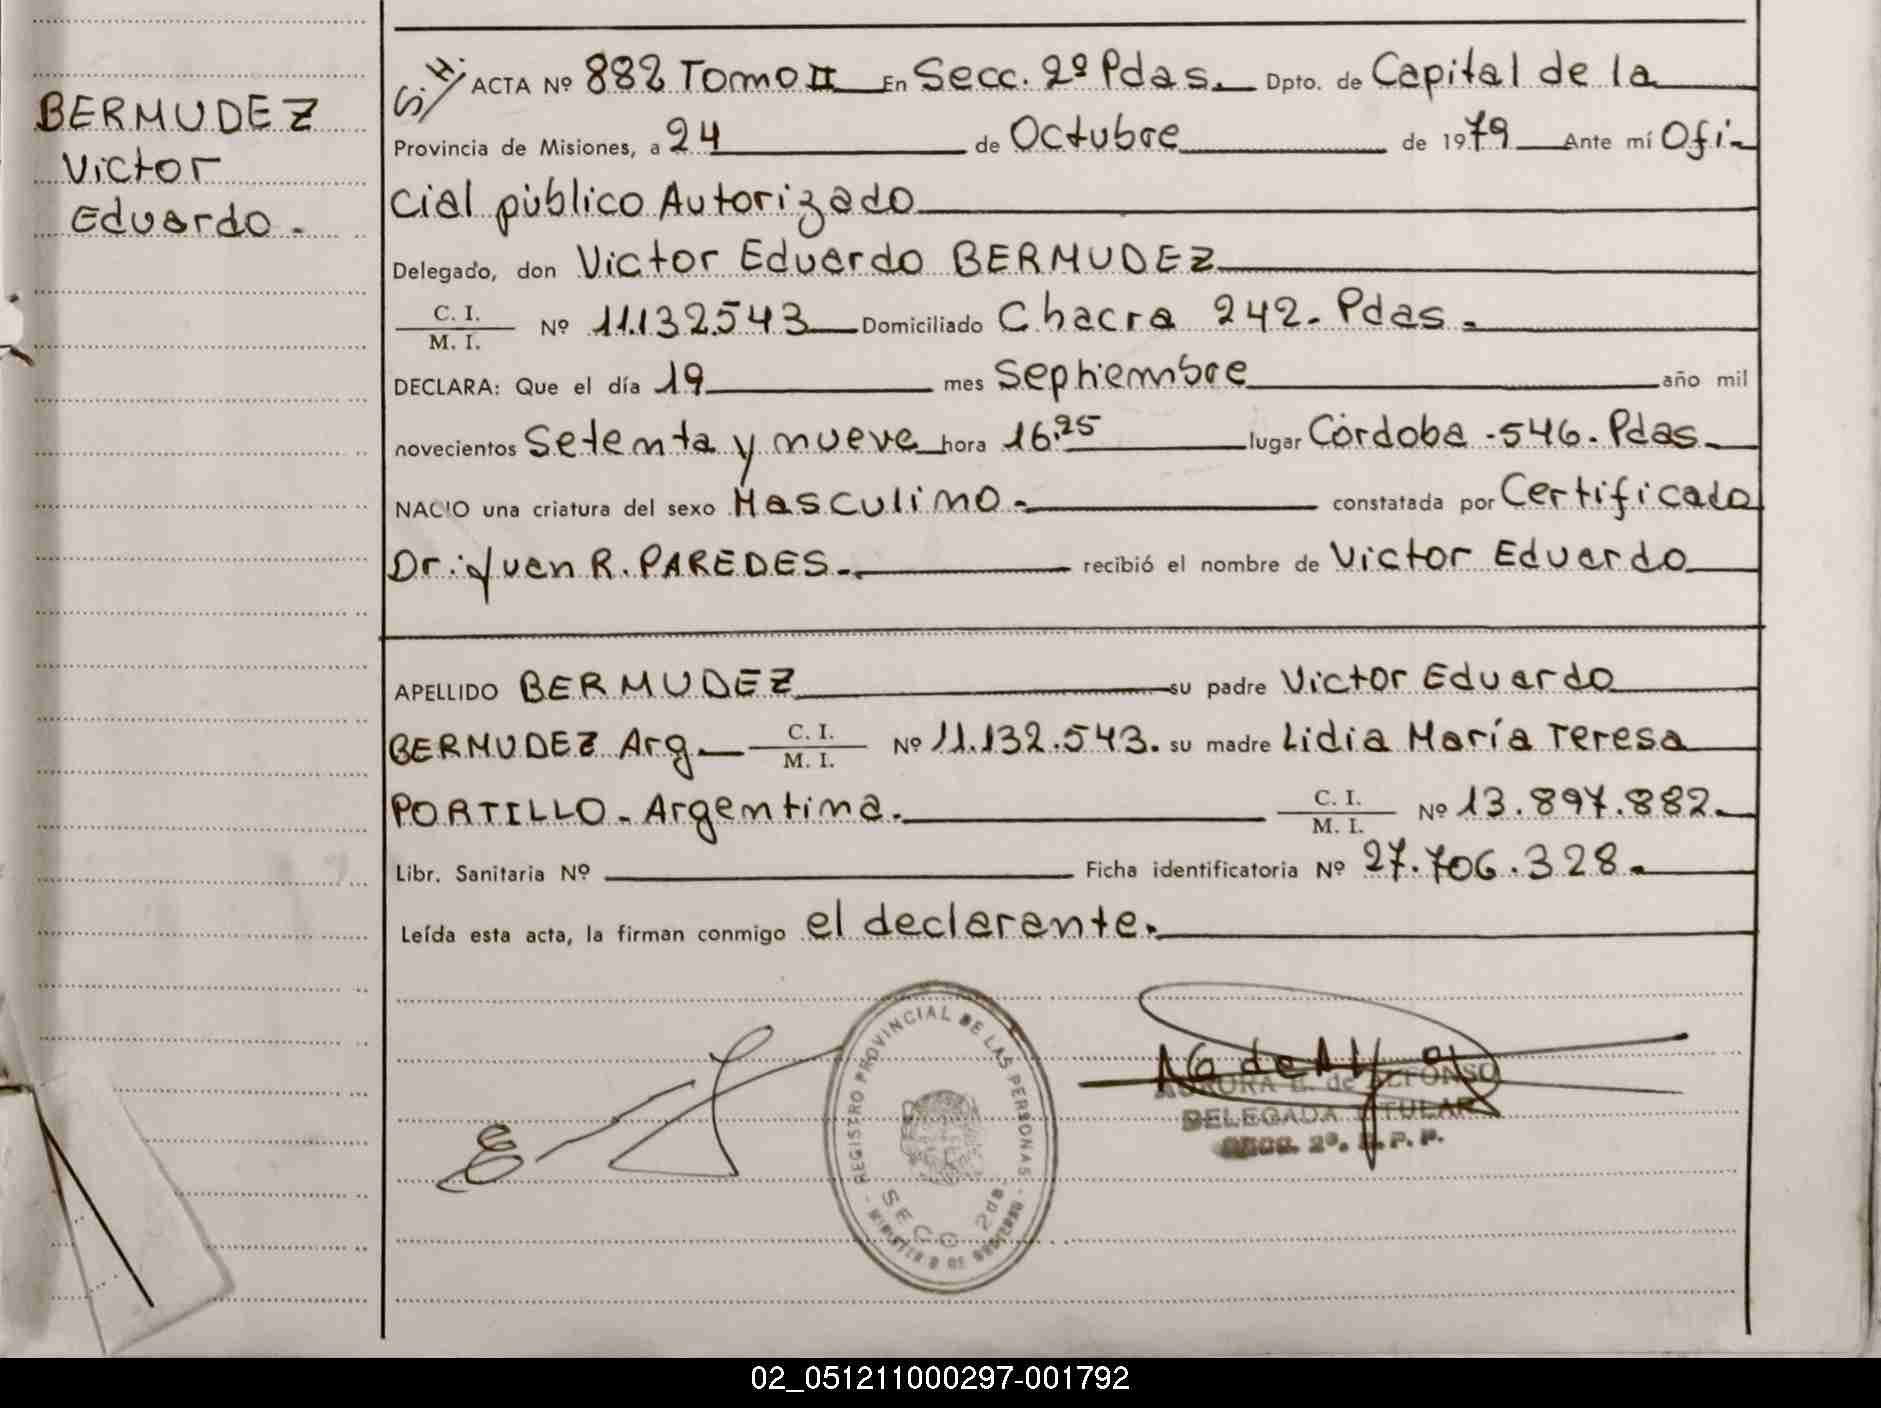 BERMUDEZ
Victor
Eduardo.
S/H. ACTA Nº 882 Tomo II En Secc. 2º Pdas. Dpto. de Capital de la
Provincia de Misiones, a 24 de Octubre de 1979 Ante mí Ofi-
cial público Autorizado
Delegado, don Victor Eduardo BERMUDEZ
C. I.
M. I. Nº 11.132.543 Domiciliado Chacra 242. Pdas.
DECLARA: Que el día 19 mes Septiembre año mil
novecientos Setenta y nueve hora 16.25 lugar Córdoba - 546. Pdas.
NACIO una criatura del sexo Masculino. constatada por Certificado
Dr: Juan R. PAREDES. recibió el nombre de Victor Eduardo
APELLIDO BERMUDEZ su padre Victor Eduardo
BERMUDEZ Arg. C. I. M. I. Nº 11.132.543. su madre Lidia María Teresa
PORTILLO. Argentina. C. I. M. I. Nº 13.897.882.
Libr. Sanitaria Nº Ficha identificatoria Nº 27.706.328.
Leída esta acta, la firman conmigo el declarante.
REGISTRO PROVINCIAL DE LAS PERSONAS
SECC 2da.
MINISTERIO DE GOBIERNO
de ALFONSO
DELEGADA TITULAR
SECC. 2º. R. P. P.
02_051211000297-001792